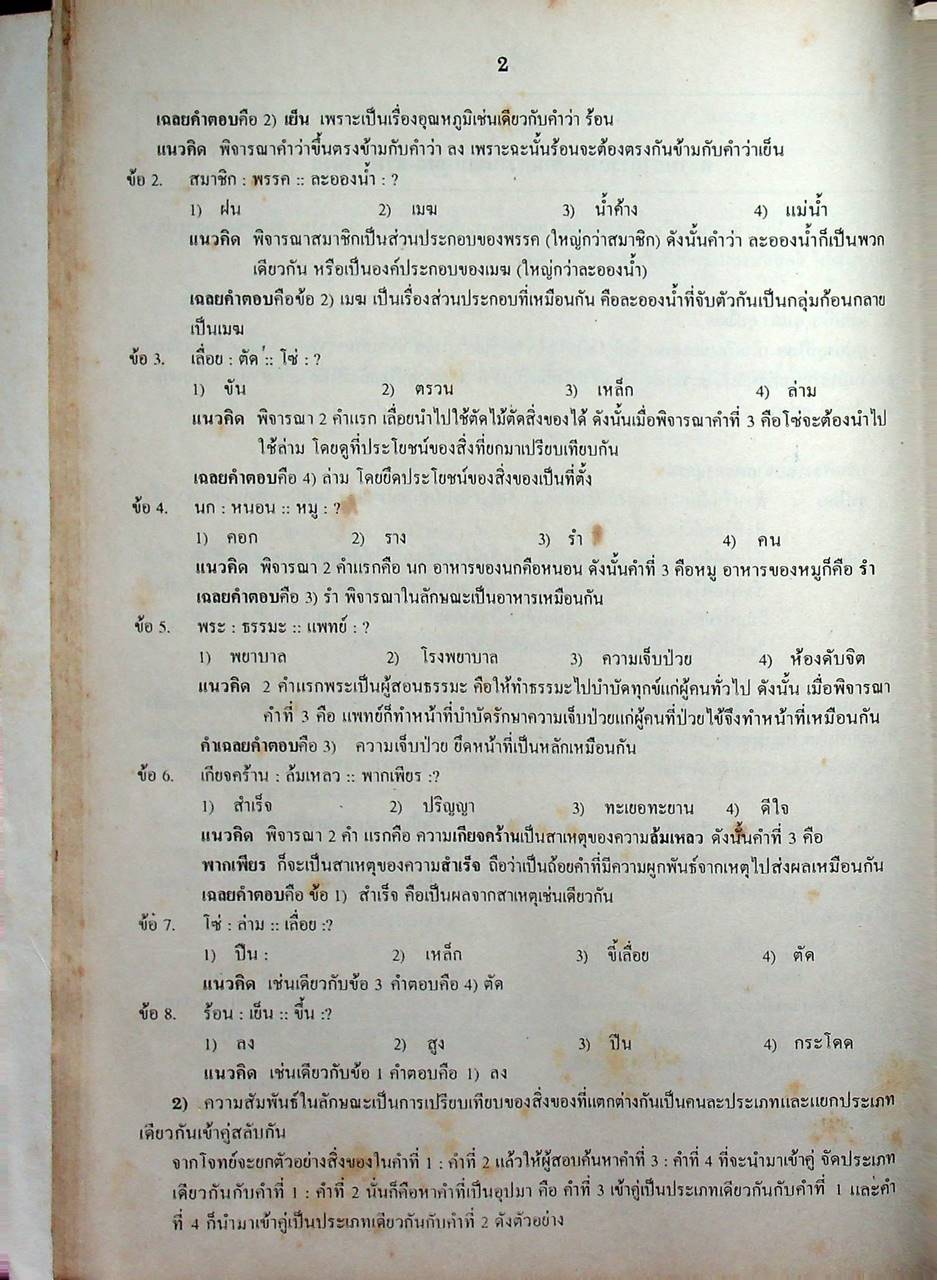 2
เฉลยคำตอบคือ 2) เย็น เพราะเป็นเรื่องอุณหภูมิเช่นเดียวกับคำว่า ร้อน
แนวคิด พิจารณาคำว่าขึ้นตรงข้ามกับคำว่า ลง เพราะฉะนั้นร้อนจะต้องตรงกันข้ามกับคำว่าเย็น
ข้อ 2. สมาชิก : พรรค :: ละอองน้ำ : ?
1) ฝน 2) เมฆ 3) น้ำค้าง 4) แม่น้ำ
แนวคิด พิจารณาสมาชิกเป็นส่วนประกอบของพรรค (ใหญ่กว่าสมาชิก) ดังนั้นคำว่า ละอองน้ำก็เป็นพวก
เดียวกัน หรือเป็นองค์ประกอบของเมฆ (ใหญ่กว่าละอองน้ำ)
เฉลยคำตอบคือข้อ 2) เมฆ เป็นเรื่องส่วนประกอบที่เหมือนกัน คือละอองน้ำที่จับตัวกันเป็นกลุ่มก้อนกลาย
เป็นเมฆ
ข้อ 3. เลื่อย : ตัด :: โซ่ : ?
1) ขัน 2) ตรวน 3) เหล็ก 4) ล่าม
แนวคิด พิจารณา 2 คำแรก เลื่อยนำไปใช้ตัดไม้ตัดสิ่งของได้ ดังนั้นเมื่อพิจารณาคำที่ 3 คือโซ่จะต้องนำไป
ใช้ล่าม โดยดูที่ประโยชน์ของสิ่งที่ยกมาเปรียบเทียบกัน
เฉลยคำตอบคือ 4) ล่าม โดยยึดประโยชน์ของสิ่งของเป็นที่ตั้ง
ข้อ 4. นก : หนอน :: หมู : ?
1) คอก 2) ราง 3) รำ 4) คน
แนวคิด พิจารณา 2 คำแรกคือ นก อาหารของนกคือหนอน ดังนั้นคำที่ 3 คือหมู อาหารของหมูก็คือ รำ
เฉลยคำตอบคือ 3) รำ พิจารณาในลักษณะเป็นอาหารเหมือนกัน
ข้อ 5. พระ : ธรรมะ :: แพทย์ : ?
1) พยาบาล 2) โรงพยาบาล 3) ความเจ็บป่วย 4) ห้องดับจิต
แนวคิด 2 คำแรกพระเป็นผู้สอนธรรมะ คือให้ทำธรรมะไปบำบัดทุกข์แก่ผู้คนทั่วไป ดังนั้น เมื่อพิจารณา
คำที่ 3 คือ แพทย์ก็ทำหน้าที่บำบัดรักษาความเจ็บป่วยแก่ผู้คนที่ป่วยไข้จึงทำหน้าที่เหมือนกัน
คำเฉลยคำตอบคือ 3) ความเจ็บป่วย ยึดหน้าที่เป็นหลักเหมือนกัน
ข้อ 6. เกียจคร้าน : ล้มเหลว :: พากเพียร :?
1) สำเร็จ 2) ปริญญา 3) ทะเยอทะยาน 4) ดีใจ
แนวคิด พิจารณา 2 คำ แรกคือ ความเกียจคร้านเป็นสาเหตุของความล้มเหลว ดังนั้นคำที่ 3 คือ
พากเพียร ก็จะเป็นสาเหตุของความสำเร็จ ถือว่าเป็นถ้อยคำที่มีความผูกพันธ์จากเหตุไปส่งผลเหมือนกัน
เฉลยคำตอบคือ ข้อ 1) สำเร็จ คือเป็นผลจากสาเหตุเช่นเดียวกัน
ข้อ 7. โซ่ : ล่าม :: เลื่อย :?
1) ปืน : 2) เหล็ก 3) ขี้เลื่อย 4) ตัด
แนวคิด เช่นเดียวกับข้อ 3 คำตอบคือ 4) ตัด
ข้อ 8. ร้อน : เย็น :: ขึ้น :?
1) ลง 2) สูง 3) ปีน 4) กระโดด
แนวคิด เช่นเดียวกับข้อ 1 คำตอบคือ 1) ลง
2) ความสัมพันธ์ในลักษณะเป็นการเปรียบเทียบของสิ่งของที่แตกต่างกันเป็นคนละประเภทและแยกประเภท
เดียวกันเข้าคู่สลับกัน
จากโจทย์จะยกตัวอย่างสิ่งของในคำที่ 1 : คำที่ 2 แล้วให้ผู้สอบค้นหาคำที่ 3 : คำที่ 4 ที่จะนำมาเข้าคู่ จัดประเภท
เดียวกันกับคำที่ 1 : คำที่ 2 นั่นก็คือหาคำที่เป็นอุปมา คือ คำที่ 3 เข้าคู่เป็นประเภทเดียวกันกับคำที่ 1 และคำ
ที่ 4 ก็นำมาเข้าคู่เป็นประเภทเดียวกันกับคำที่ 2 ดังตัวอย่าง